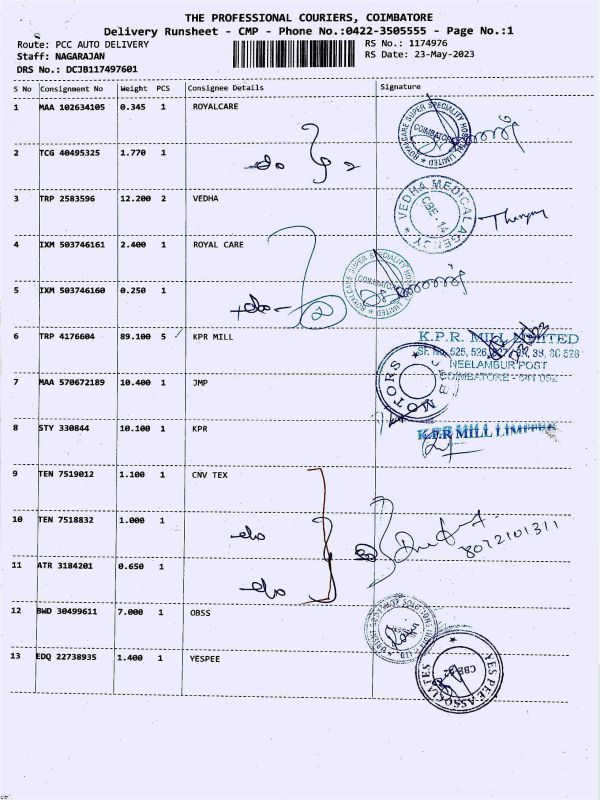 THE PROFESSIONAL COURIERS, COIMBATORE
Delivery Runsheet - CMP - Phone No.:0422-3505555 - Page No.:1
Route: PCC AUTO DELIVERY
RS No.: 1174976
Staff: NAGARAJAN
RS Date: 23-May-2023
DRS No.: DCJB117497601
S No Consignment No Weight PCS Consignee Details Signature
1 MAA 102634105 0.345 1 ROYALCARE
ROYALCARE SUPER SPECIALITY HOSPITAL LIMITED
COIMBATORE
2 TCG 40495325 1.770 1
do 2
3 TRP 2583596 12.200 2 VEDHA
VEDHA MEDICAL AGENCY
CBE - 14
4 IXM 503746161 2.400 1 ROYAL CARE
ROYALCARE SUPER SPECIALITY HOSPITAL LIMITED
COIMBATORE
5 IXM 503746160 0.250 1
do 2
6 TRP 4176604 89.100 5 KPR MILL
K.P.R. MILL LIMITED
NEELAMBUR POST
COIMBATORE - 641 062
7 MAA 570672189 10.400 1 JMP
MOTORS
8 STY 330844 10.100 1 KPR
K.P.R MILL LIMITED
9 TEN 7519012 1.100 1 CNV TEX
10 TEN 7518832 1.000 1
do
8072101311
11 ATR 3184201 0.650 1
do
12 BWD 30499611 7.000 1 OBSS
13 EDQ 22738935 1.400 1 YESPEE
YES PEE ASSOCIATES